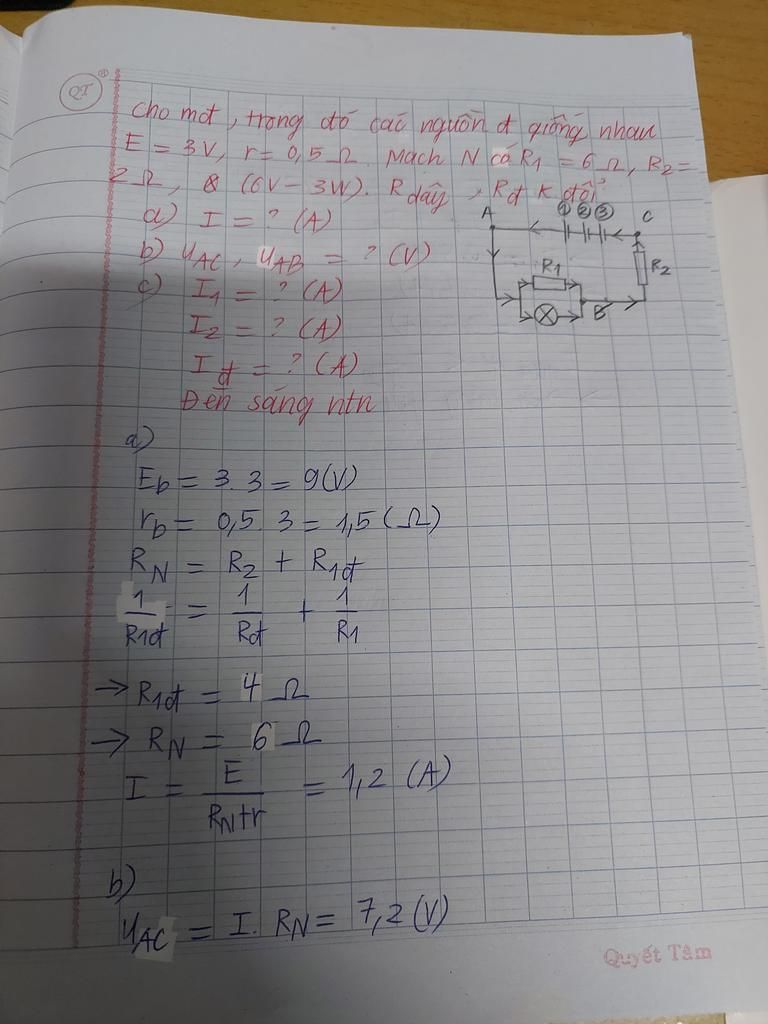 QT
Cho mđ, trong đó các nguồn đ giống nhau
E = 3V, r = 0,5 Ω. Mạch N có R1 = 6 Ω, R2 =
2 Ω, ⊗ (6V - 3W). R dây, Rđ K đổi
a) I = ? (A)
b) UAC, UAB = ? (V)
c) I1 = ? (A)
I2 = ? (A)
Iđ = ? (A)
Đèn sáng ntn
A
① ② ③
C
R1
R2
B
a)
Eb = 3.3 = 9(V)
rb = 0,5.3 = 1,5 (Ω)
RN = R2 + R1đ
1/R1đ = 1/Rđ + 1/R1
→ R1đ = 4 Ω
→ RN = 6 Ω
I = E/(RN+r) = 1,2 (A)
b)
UAC = I. RN = 7,2 (V)
Quyết Tâm